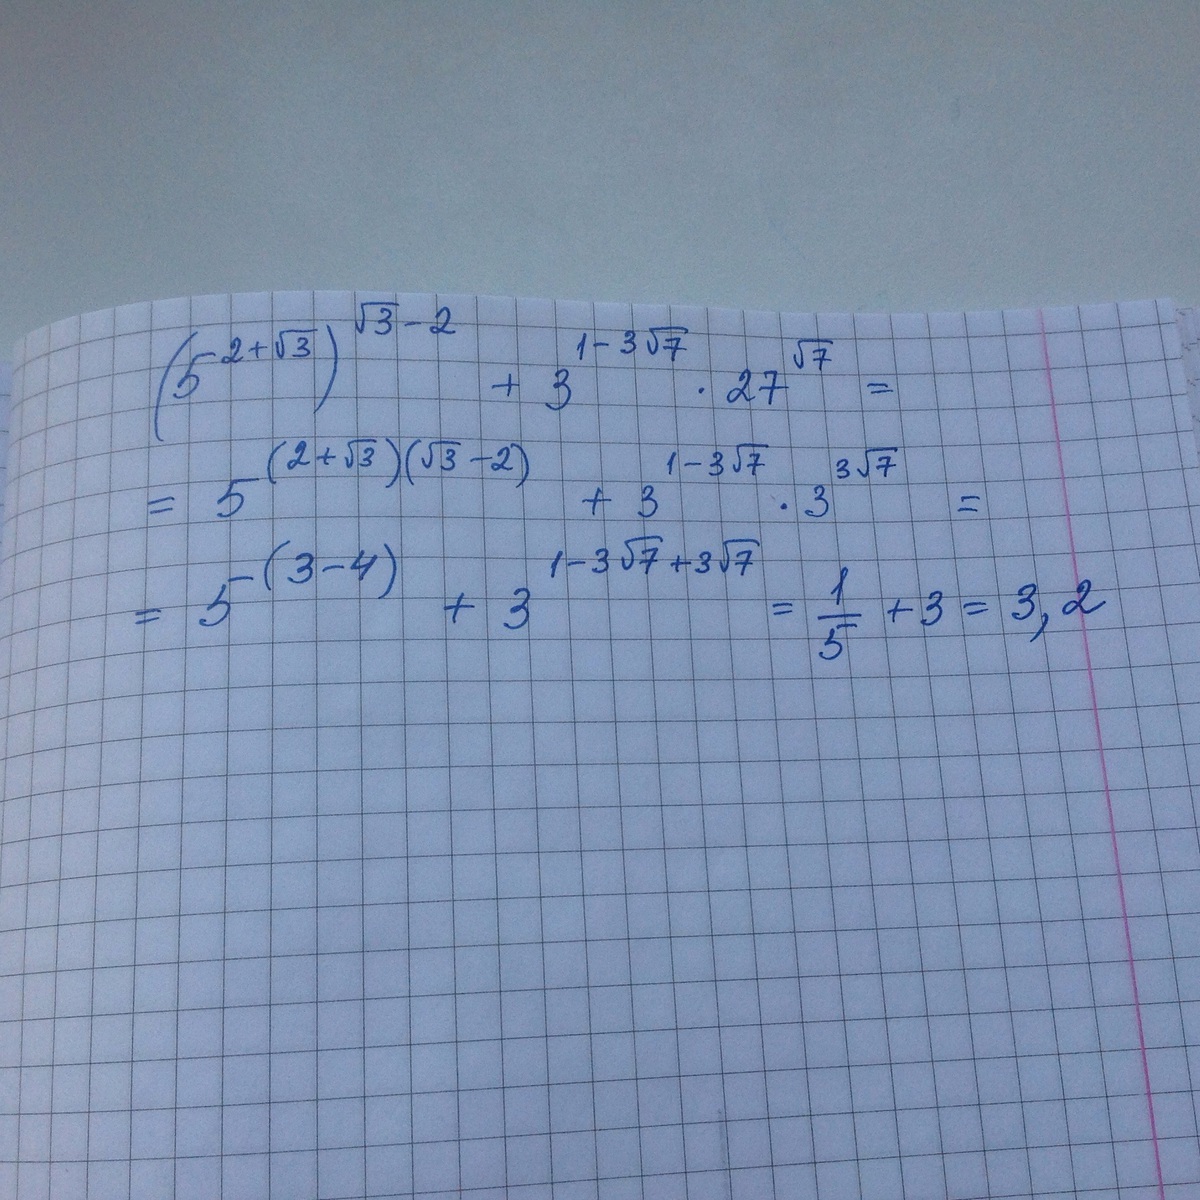 (5^{2+√3})^{√3-2} + 3^{1-3√7} · 27^{√7} =
= 5^{(2+√3)(√3-2)} + 3^{1-3√7} · 3^{3√7} =
= 5^{-(3-4)} + 3^{1-3√7+3√7} = 1/5 + 3 = 3,2